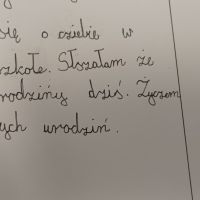 się o ciebie w
szkole. Słszałam że
rodzińy dziś. Życzem
ych urodziń.